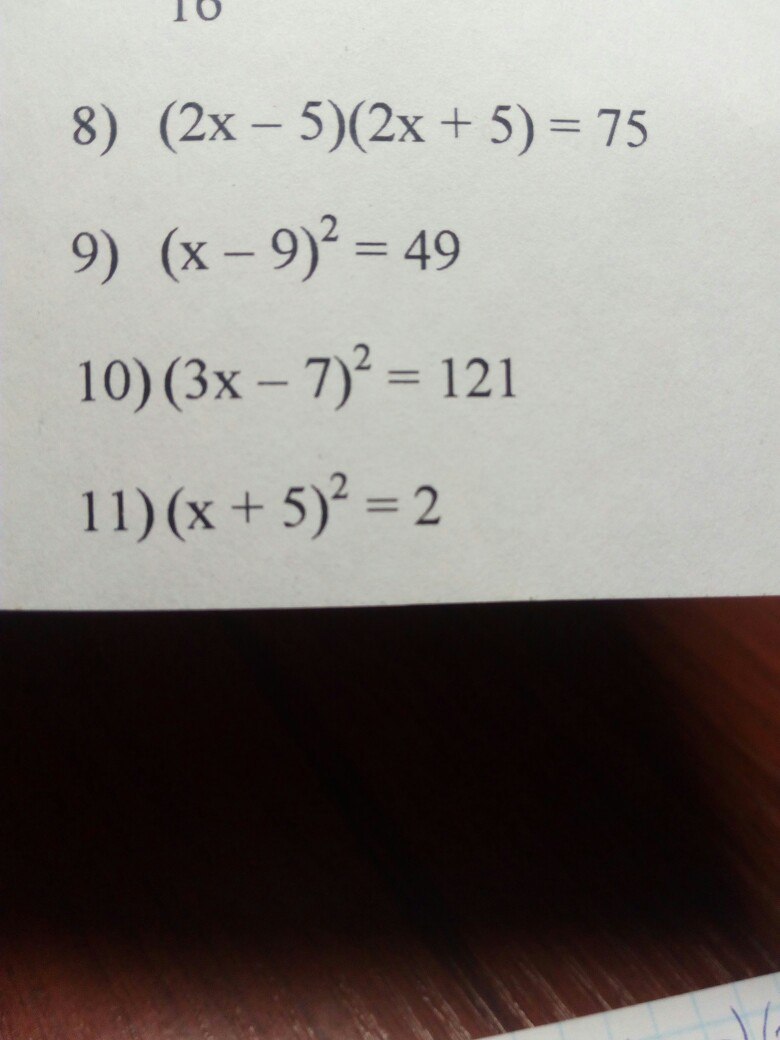 16
8) (2x – 5)(2x + 5) = 75
9) (x – 9)² = 49
10) (3x – 7)² = 121
11) (x + 5)² = 2